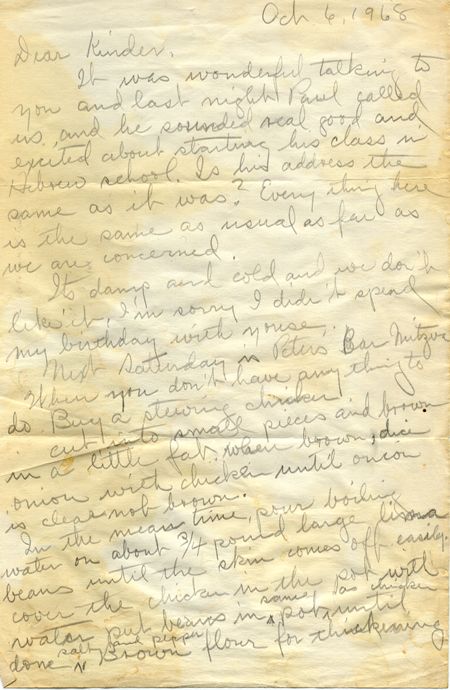 Oct 6, 1968
Dear Kinder,
It was wonderful talking to
you and last night Paul called
us, and he sounded real good and
excited about starting his class in
Hebrew school. Is his address the
same as it was? Every thing here
is the same as usual as far as
we are concerned.
Its damp and cold and we don't
like it, I'm sorry I didn't spend
my birthday with youse,
Next Saturday is Peters Bar Mitzva
When you don't have any thing to
do Buy a stewing chicken
cut into small pieces and brown
in a little fat, when brown, dice
onion with chicken until onion
is clear not brown.
In the mean time, pour boiling
water on about 3/4 pound large lima
beans until the skin comes off easily
cover the chicken in the pot with
water put beans in same pot, until chicken
done salt and pepper Brown flour for thickening